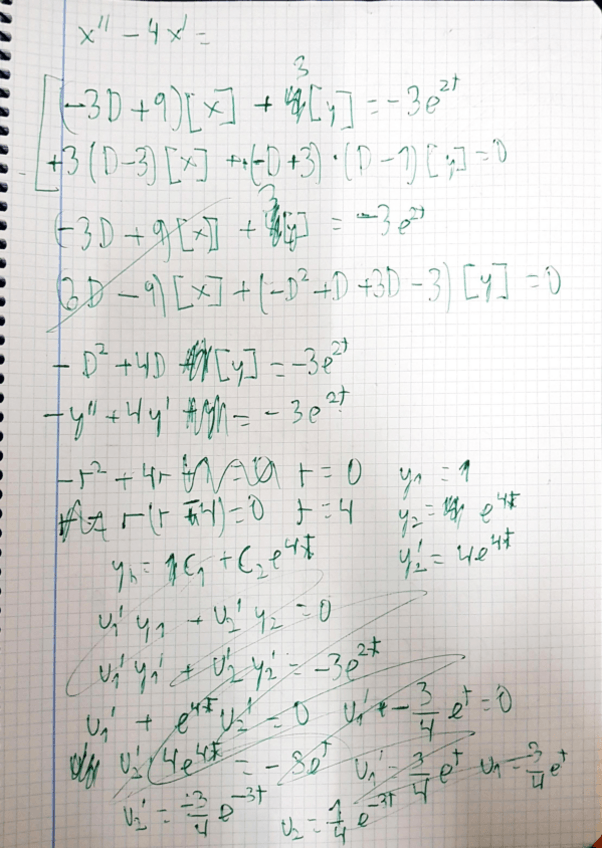 x'' - 4x' =
3
(-3D + 9)[x] + [y] = -3e^{2t}
+3(D-3)[x] + (-D+3)·(D-1)[y] = 0
(-3D + 9)[x] + 3[y] = -3e^{2t}
(3D - 9)[x] + (-D² + D + 3D - 3)[y] = 0
- D² + 4D [y] = -3e^{2t}
- y'' + 4y' = - 3e^{2t}
-r² + 4r r = 0 y₁ = 1
r(r - 4) = 0 r = 4 y₂ = e^{4t}
y_h = C₁ + C₂e^{4t} y₂' = 4e^{4t}
v₁'y₁ + v₂'y₂ = 0
v₁'y₁' + v₂'y₂' = -3e^{2t}
v₁' + e^{4t}v₂' = 0 v₁' - \frac{3}{4}e^t = 0
v₂' 4e^{4t} = - 3e^t v₁' = \frac{3}{4}e^t v₁ = \frac{3}{4}e^t
v₂' = \frac{-3}{4}e^{-3t} v₂ = \frac{1}{4}e^{-3t}